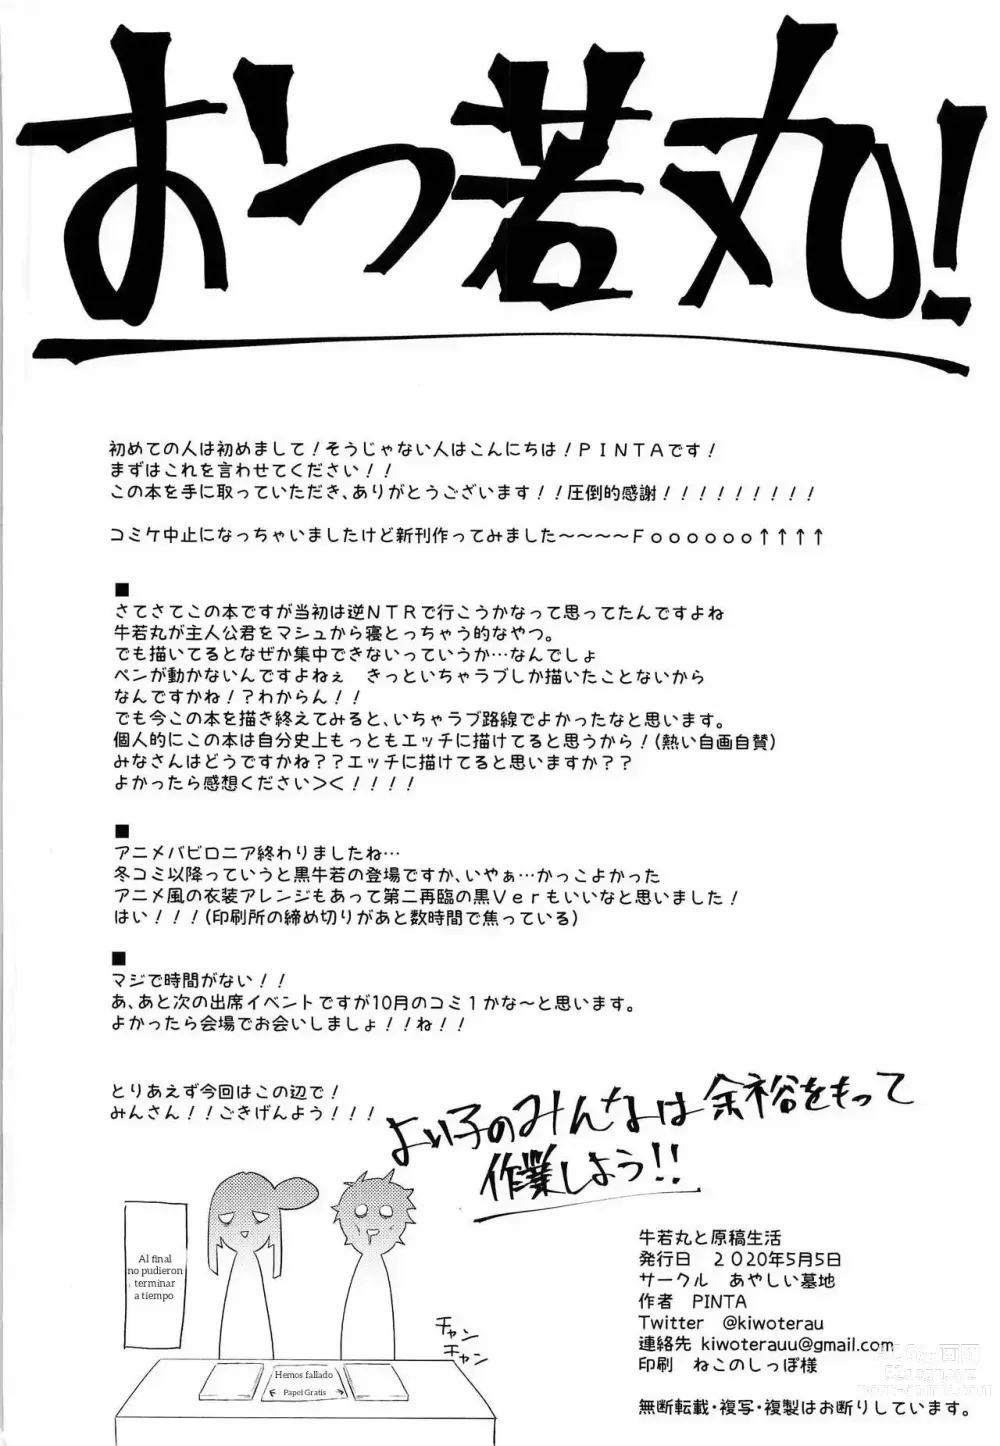 おつ若丸!
初めての人は初めまして!そうじゃない人はこんにちは!PINTAです!
まずはこれを言わせてください!!
この本を手に取っていただき、ありがとうございます!!圧倒的感謝!!!!!!!!!
コミケ中止になっちゃいましたけど新刊作ってみました~~~~Foooooo↑↑↑↑
■
さてさてこの本ですが当初は逆NTRで行こうかなって思ってたんですよね
牛若丸が主人公君をマシュから寝とっちゃう的なやつ。
でも描いてるとなぜか集中できないっていうか…なんでしょ
ペンが動かないんですよねぇ　きっといちゃラブしか描いたことないから
なんですかね!?わからん!!
でも今この本を描き終えてみると、いちゃラブ路線でよかったなと思います。
個人的にこの本は自分史上もっともエッチに描けてると思うから!(熱い自画自賛)
みなさんはどうですかね??エッチに描けてると思いますか??
よかったら感想ください><!!!!
■
アニメバビロニア終わりましたね…
冬コミ以降っていうと黒牛若の登場ですか、いやぁ…かっこよかった
アニメ風の衣装アレンジもあって第二再臨の黒Verもいいなと思いました!
はい!!!(印刷所の締め切りがあと数時間で焦っている)
■
マジで時間がない!!
あ、あと次の出席イベントですが10月のコミ1かな~と思います。
よかったら会場でお会いしましょ!!ね!!
とりあえず今回はこの辺で!
みんさん!!ごきげんよう!!!
よい子のみんなは余裕をもって
作業しよう!!
Al final
no pudieron
terminar
a tiempo
チャン
チャン
Hemos fallado
Papel Gratis
牛若丸と原稿生活
発行日　2020年5月5日
サークル　あやしい墓地
作者　PINTA
Twitter　@kiwoterau
連絡先 kiwoterauu@gmail.com
印刷　ねこのしっぽ様
無断転載・複写・複製はお断りしています。